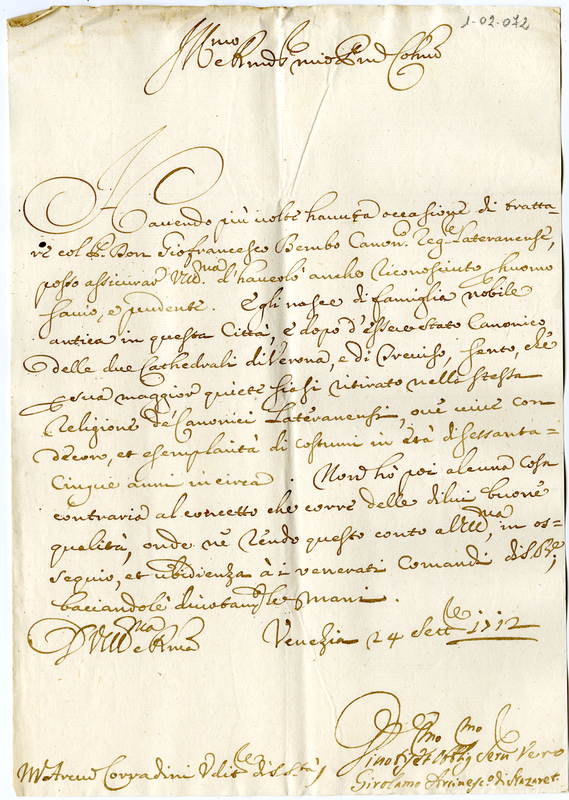 1-02-072
Ill.mo e R.mo Sig.r mio P.ron Col.mo
Hauendo più uolte hauuta occasione di tratta=
re col P. Don Giofrancesco Bembo Canon.o Reg.le Lateranense,
posso assicurar V.S. Ill.ma d'hauerlo anche riconosciuto huomo
sauio, e prudente. Egli nasce di famiglia nobile
antica in questa Città, e dopo d'essere stato Canonico
delle due Cathedrali di Verona, e di Treuiso, sento, che
p sua maggior quiete siasi ritirato nella stessa
Religione de' Canonici Lateranensi, oue uiue con
decoro, et esemplarità di costumi in età di sessanta=
cinque anni in circa. Non hò poi alcuna cosa
contraria al concetto che corre delle di lui buone
qualità, onde nè rendo questo conto a V.S. Ill.ma, in os=
sequio, et ubidienza à i venerati Comandi di S. B.e,
baciandole diuotam.te le mani.
D V.S. Ill.ma e R.ma Venezia 24 Sett.e 1712
Mr Arciu.o Corradini Udit.e di S. S.tà
Dino et Obblig.mo Seru Vero
Girolamo Arciuesc.o di Nazaret.